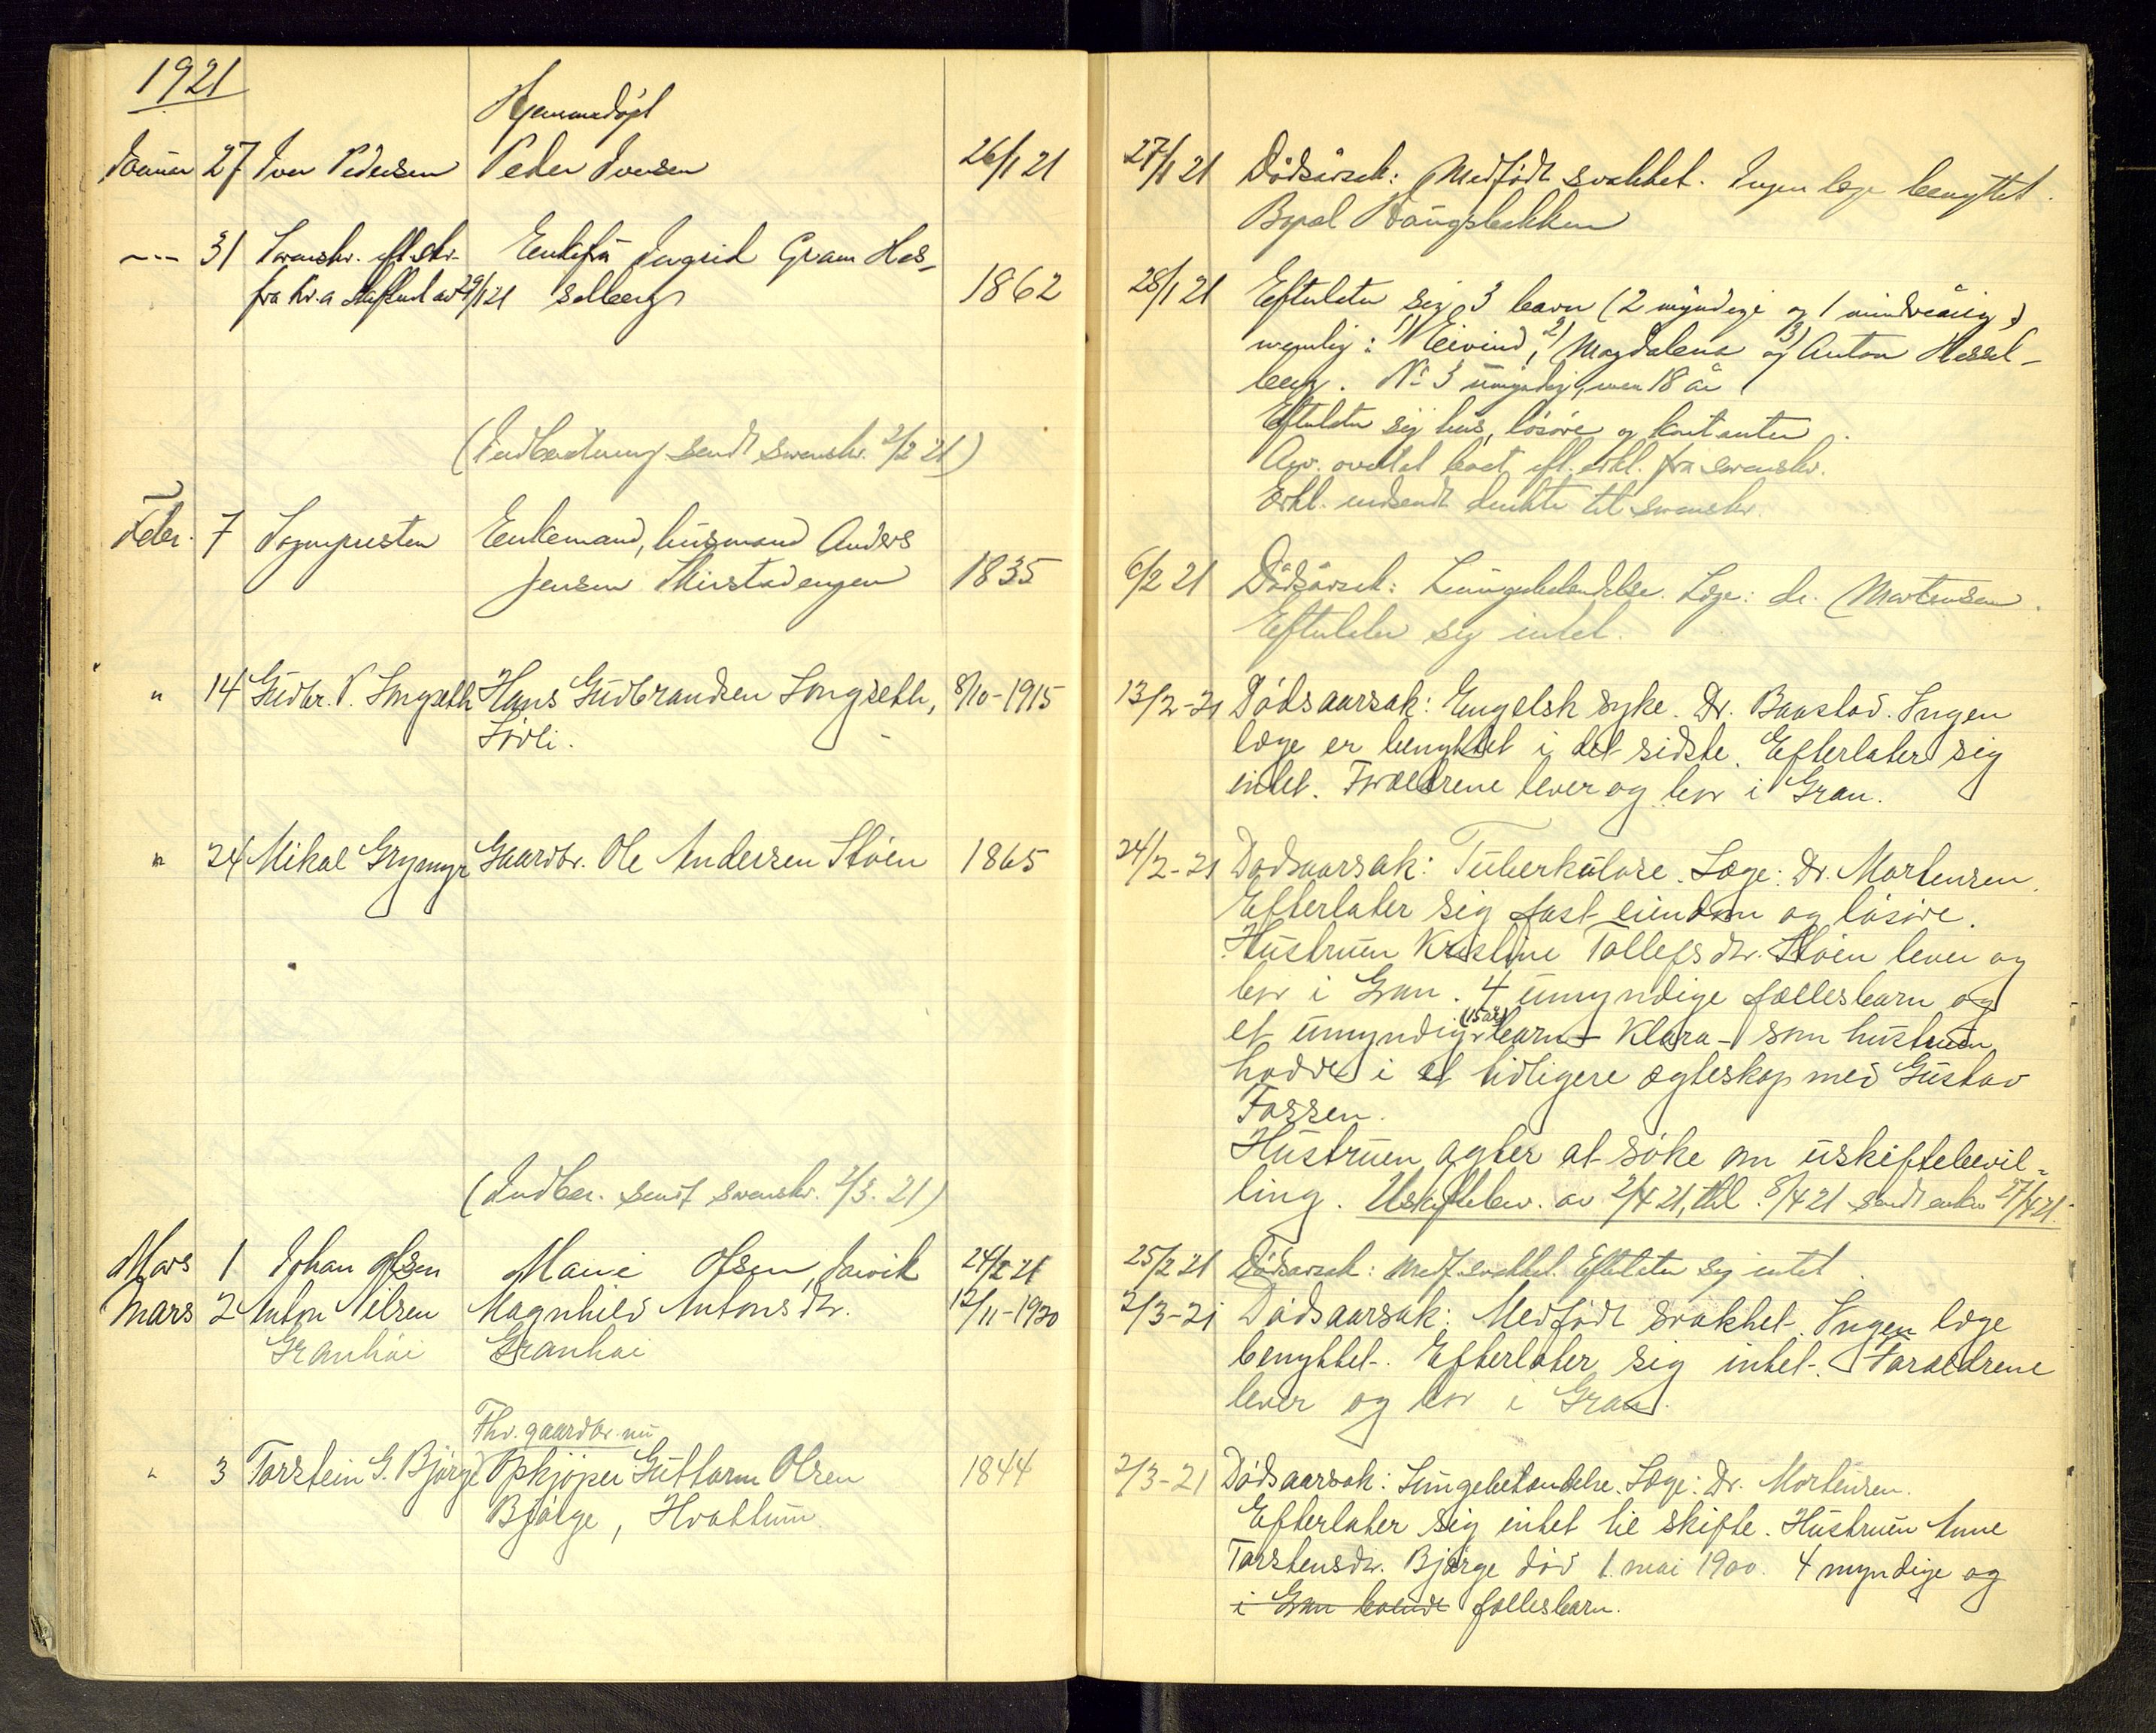 1921
Hjemmedöpt
Januar 27 Iver Pedersen Peder Iversen 26/1 21
--- 31 Sorenskr. eft. skr. Enkefru Ingrid Gram Hes-
fra Kr.a skifteret av 29/1 21 selberg 1862
(Indberetning sendt sorenskr. 2/2 21)
Febr. 7 Sognepresten Enkemand, husmand Anders
Jensen 1835
" 14 Gudbr. P. Lyngseth Hans Gudbrandsen Longseth, 8/10-1915
Lövli.
" 24 Mikal Grymyr Gaardbr. Ole Andersen Stöen 1865
(Indber. sendt sorenskr. 2/3. 21)
Mars 1 Johan Olsen Marie Olsen, Jarvik 24/2 21
Mars 2 Anton Nilsen Magnhild Antonsdtr. 12/11-1920
Granhöi Granhöi
Fhv. gaardbr. nu
" 3 Torstein G. Bjørge Opkjöper Guttorm Olsen 1844
Bjørge, Hvattum
27/1 21 Dødsårsak: Medfødt svakhet. Ingen læge benyttet.
Bopæl
28/1 21 Efterlater sig 3 barn (2 myndige og 1 mindreårig)
nemlig: 1) Eivind, 2) Magdalena og 3) Anton Hessel-
berg. No 3 umyndig, men 18 år
Efterlater sig hus, lösöre og kontanter.
overtat boet eft. erkl. fra sorenskr.
Erkl. indsendt direkte til sorenskr.
6/2 21 Dødsårsak: Lungebetendelse. Læge: dr. Mortensen.
Efterlater sig intet.
13/2-21 Dødsaarsak: Engelsk syke. Dr. Baastad. Ingen
læge er benyttet i det sidste. Efterlater sig
intet. Foreldrene lever og bor i Gran.
24/2-21 Dødsaarsak: Tuberkulose. Læge: Dr. Mortensen.
Efterlater sig fast eiendom og lösöre.
Hustruen Kristine Tollefsdtr. Stöen lever og
bor i Gran. 4 umyndige fællesbarn og
et umyndig (15 år) barn - Klara - som hustruen
hadde i et tidligere ægteskap med Gustav
Fossen.
Hustruen agter at søke om uskiftebevil-
ling. Uskiftebev. av 2/4 21, thl. 8/4 21 sendt enken 27/4 21.
25/2 21 Dødsårsak: Medf. svakhet. Efterlater sig intet.
2/3-21 Dødsaarsak: Medfødt svakhet. Ingen læge
benyttet. Efterlater sig intet. Foraeldrene
lever og bor i Gran.
2/3-21 Dødsaarsak: Lungebetændelse. Læge: Dr. Mortensen.
Efterlater sig intet til skifte. Hustruen Anne
Torstensdtr. Bjørge død 1. mai 1900. 4 myndige og
i Gran boende fællesbarn.